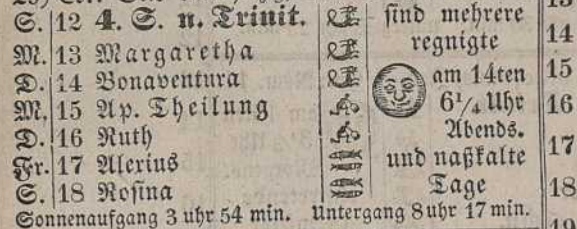 S. 12 4. S. n. Trinit. sind mehrere
M. 13 Margaretha regnigte
D. 14 Bonaventura am 14ten
M. 15 Ap. Theilung 6 1/4 Uhr
D. 16 Ruth Abends.
Fr. 17 Alexius und naßkalte
S. 18 Rosina Tage
Sonnenaufgang 3 uhr 54 min. Untergang 8 uhr 17 min.
14
15
16
17
18